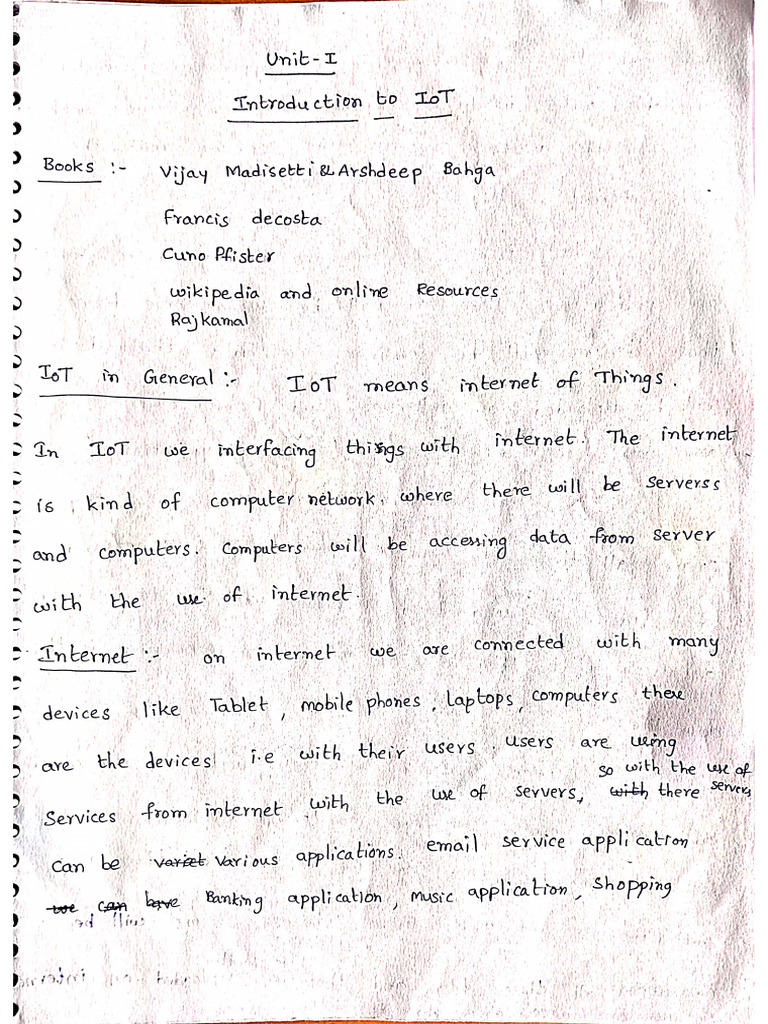 Unit-I
Introduction to IoT
Books :- Vijay Madisetti & Arshdeep Bahga
Francis decosta
Cuno Pfister
wikipedia and online Resources
Rajkamal
IoT in General :- IoT means internet of Things.
In IoT we interfacing things with internet. The internet
is kind of computer network. where there will be Serverss
and computers. Computers will be accessing data from server
with the use of internet.
Internet :- on internet we are connected with many
devices like Tablet, mobile phones, laptops, computers there
are the devices i.e with their users. users are using
so with the use of
Services from internet with the use of servers, with there servers
can be variet various applications. email service application
we can have Banking application, music application, shopping